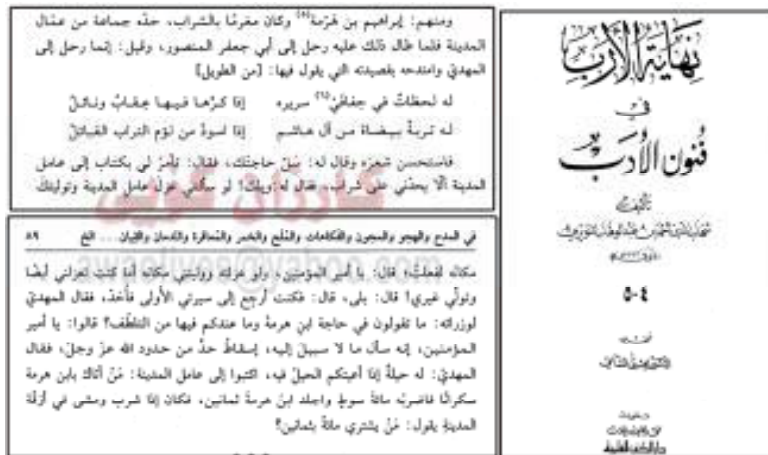 ومنهم: إبراهيم بن هَرْمة(٥) وكان مغرمًا بالشراب، حدّه جماعة من عمّال
المدينة فلما طال ذلك عليه رحل إلى أبي جعفر المنصور، وقيل: إنما رحل إلى
المهديّ وامتدحه بقصيدته التي يقول فيها: [من الطويل]
له لحظاتٌ في حفافي(٦) سريره إذا كرّها فيها عقابٌ ونائلُ
له تربةٌ بيضاء من آل هاشم إذا اسودّ من لؤم التراب القبائلُ
فاستحسن شعره وقال له: سل حاجتك، فقال: تأمر لي بكتاب إلى عامل
المدينة ألّا يحدّني على شراب، فقال له: ويلك! لو سألتني عزل عامل المدينة وتوليتك
كارزان كويى
في المدح والهجو والمجون والفكاهات والمُلَح والخمر والمُعاقرة والنُدمان والقيان ... الخ ٨٩
مكانه لفعلتُ؛ قال: يا أمير المؤمنين، ولو عزلته ووليتني مكانه أما كنت تعزلني أيضًا
وتولّي غيري؟ قال: بلى، قال: فكنت أرجع إلى سيرتي الأولى فأُحَدّ، فقال المهديّ
لوزرائه: ما تقولون في حاجة ابن هرمة وما عندكم فيها من التلطّف؟ قالوا: يا أمير
المؤمنين، إنه سأل ما لا سبيل إليه، إسقاطُ حدّ من حدود الله عزّ وجلّ، فقال
المهديّ: له حيلةٌ إذا أعيتكم الحيلُ فيه، اكتبوا إلى عامل المدينة: مَنْ أتاك بابن هرمة
سكرانًا فاضربه مائة سوط واجلد ابنَ هرمة ثمانين، فكان إذا شرب ومشى في أزقّة
المدينة يقول: مَنْ يشتري مائةً بثمانين؟
نهاية الأرب
في
فنون الأدب
تأليف
شهاب الدين أحمد بن عبد الوهاب النويري
٤-٥
دار الكتب العلمية